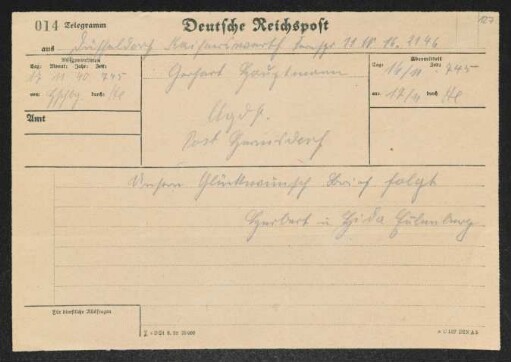 127
014 Telegramm Deutsche Reichspost
aus Düsseldorf Kaiserswerth 19 W 16. 2046
Aufgenommen
Tag: Monat: Jahr: Zeit:
17 11 40 745
von: durch:
Gerhart Hauptmann
Agdf.
Post Hermsdorf
Übermittelt
Tag: Zeit:
16/11 745
an: durch:
17/11
Amt
Unsern Glückwunsch Brief folgt
Herbert u Hedda Eulenberg
Für dienstliche Rückfragen